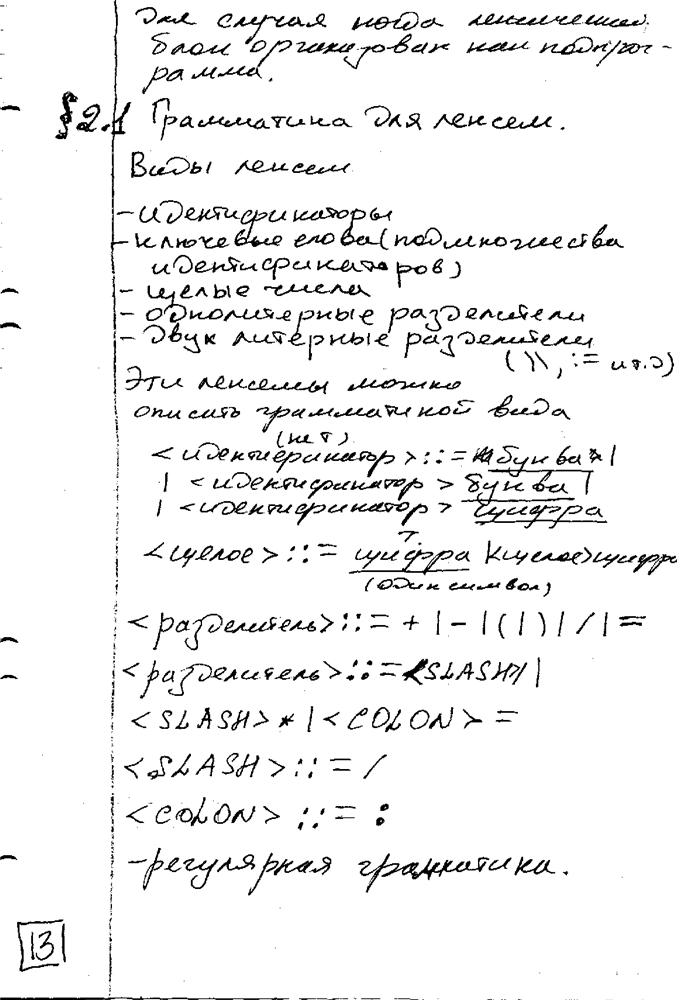 для случая когда лексический
блок организован как подпрог-
рамма.
§2.1 Грамматика для лексем.
Виды лексем
- идентификаторы
- ключевые слова (подмножества
идентификаторов)
- целые числа
- однолитерные разделители
- двух литерные разделители
( \\ , := и т.д)
Эти лексемы можно
описать грамматикой вида
(нет)
<идентификатор> ::= буква |
| <идентификатор> буква |
| <идентификатор> цифра
<целое> ::= цифра |<целое>цифра
(один символ)
<разделитель> ::= + | - | ( | ) | / | =
<разделитель> ::= <SLASH>/ |
<SLASH> * | <COLON> =
<SLASH> ::= /
<COLON> ::= :
- регулярная грамматика.
13